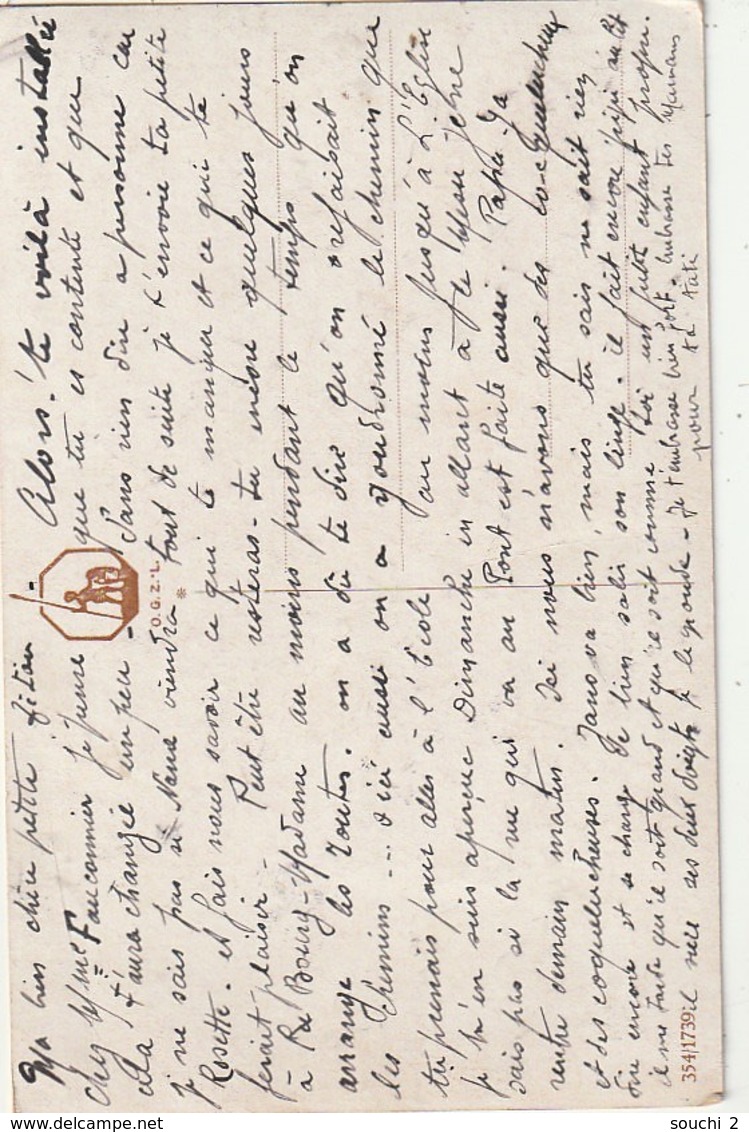 Ma bien chère petite Alors! te voilà installée
chez Mme Fauconnier je pense que tu es contente et que
cela t'aura changée un peu - Sans rien dire a personne car
je ne sais pas si Nana viendra tout de suite je t'envoie ta petite
Rosette. et fais nous savoir ce qui te manque et ce qui te
ferait plaisir - Peut être resteras-tu même quelques jours
à Bourg-Madame au moins pendant le temps qu'on
arrange les routes. on a dû te dire qu'on refaisait
les chemins --- ici aussi on a goudronné le chemin que
tu prenais pour aller à l'école au moins jusqu'à l'Eglise
je m'en suis aperçue Dimanche en allant à la Messe je ne
sais pas si la rue qui va au Pont est faite aussi. Papa
rentre demain matin. Ici nous n'avons que des coquelucheux
et des coquelucheuses. va bien, mais tu sais ne sait rien
dire encore et se charge de bien salir son linge. il fait encore pipi au lit
il me tarde qu'il soit grand et qu'il soit comme toi un petit enfant propre.
il suce ses deux doigts je le gronde - Je t'embrasse bien fort. Embrasse tes Mamans
pour ta Tati
O.G.Z.-L.
354/1739
souchi 2